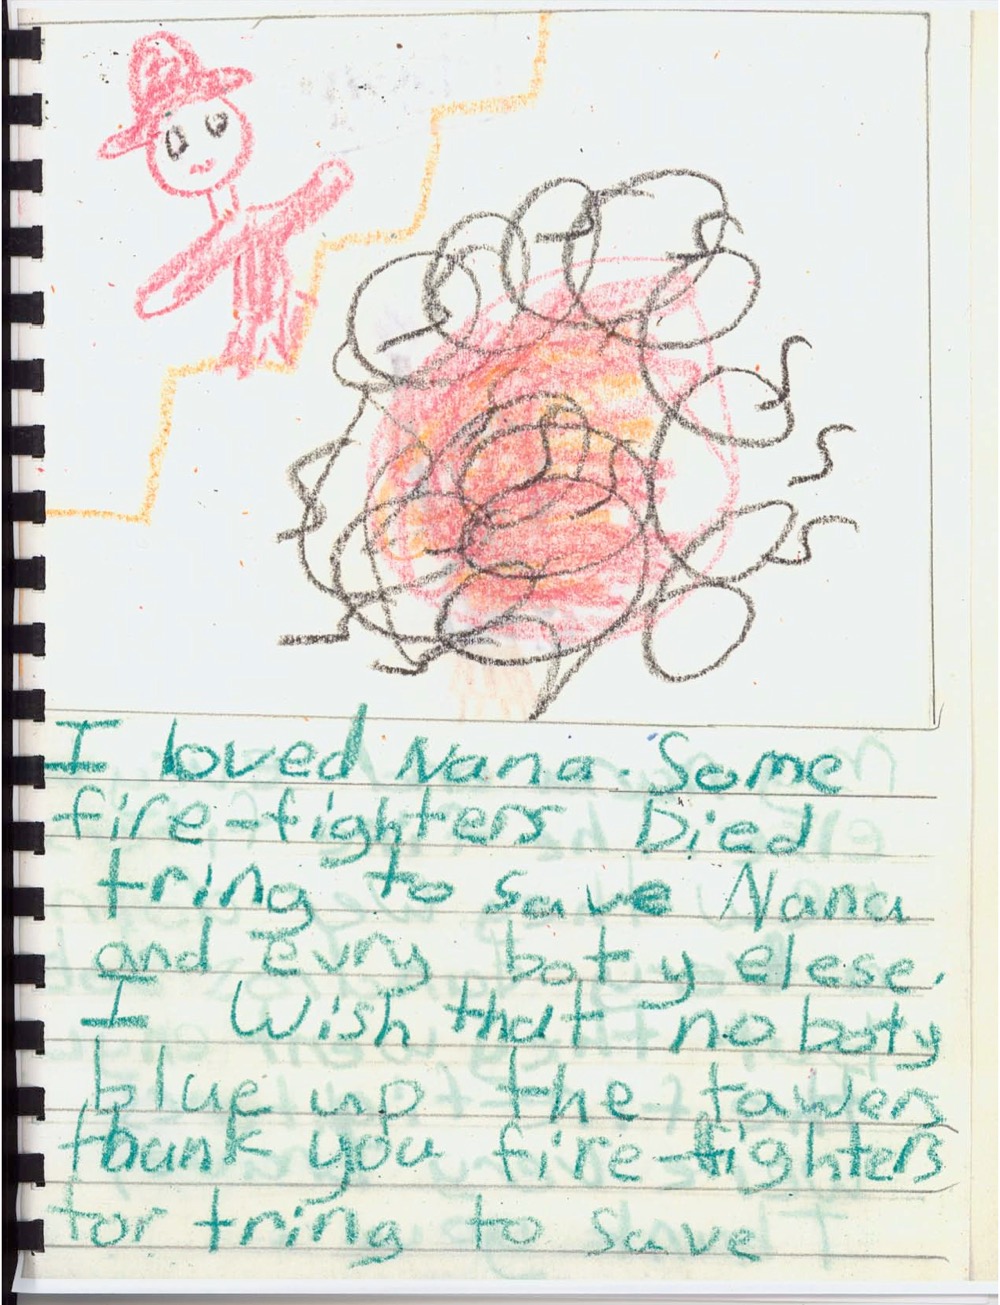 I loved Nana. Some
fire-fighters Died
tring to save Nana
and evry boty elese.
I wish that no boty
blue up the tawers
thank you fire-fighters
for tring to save